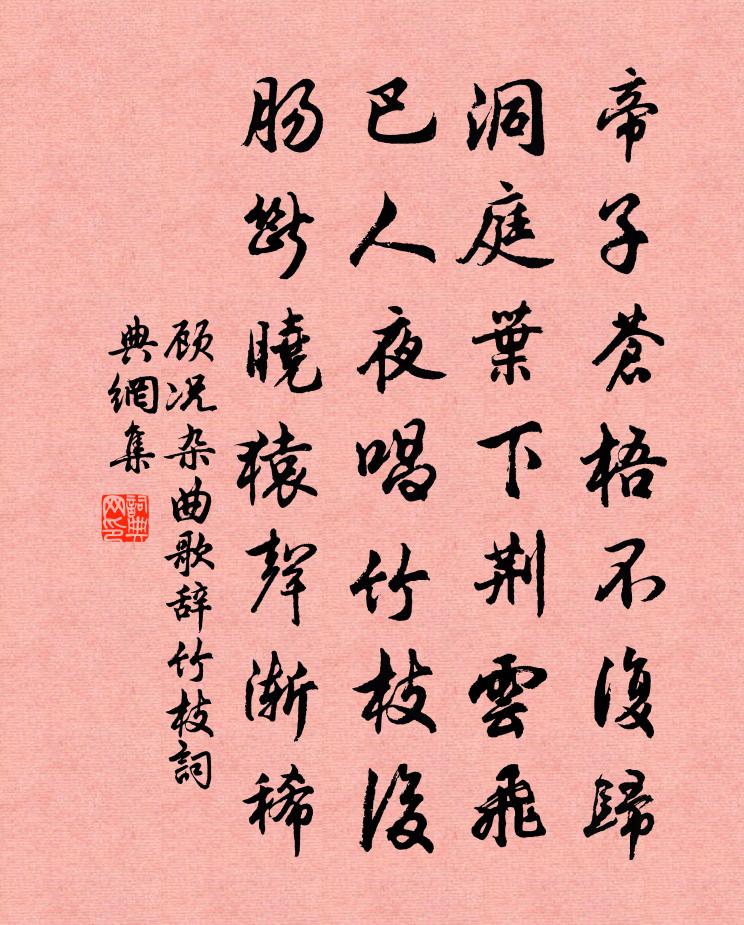 帝子蒼梧不復歸
洞庭葉下荆雲飛
巴人夜唱竹枝後
腸斷曉猿聲漸稀
顾况杂曲歌辞竹枝詞
典網集
詞典網印